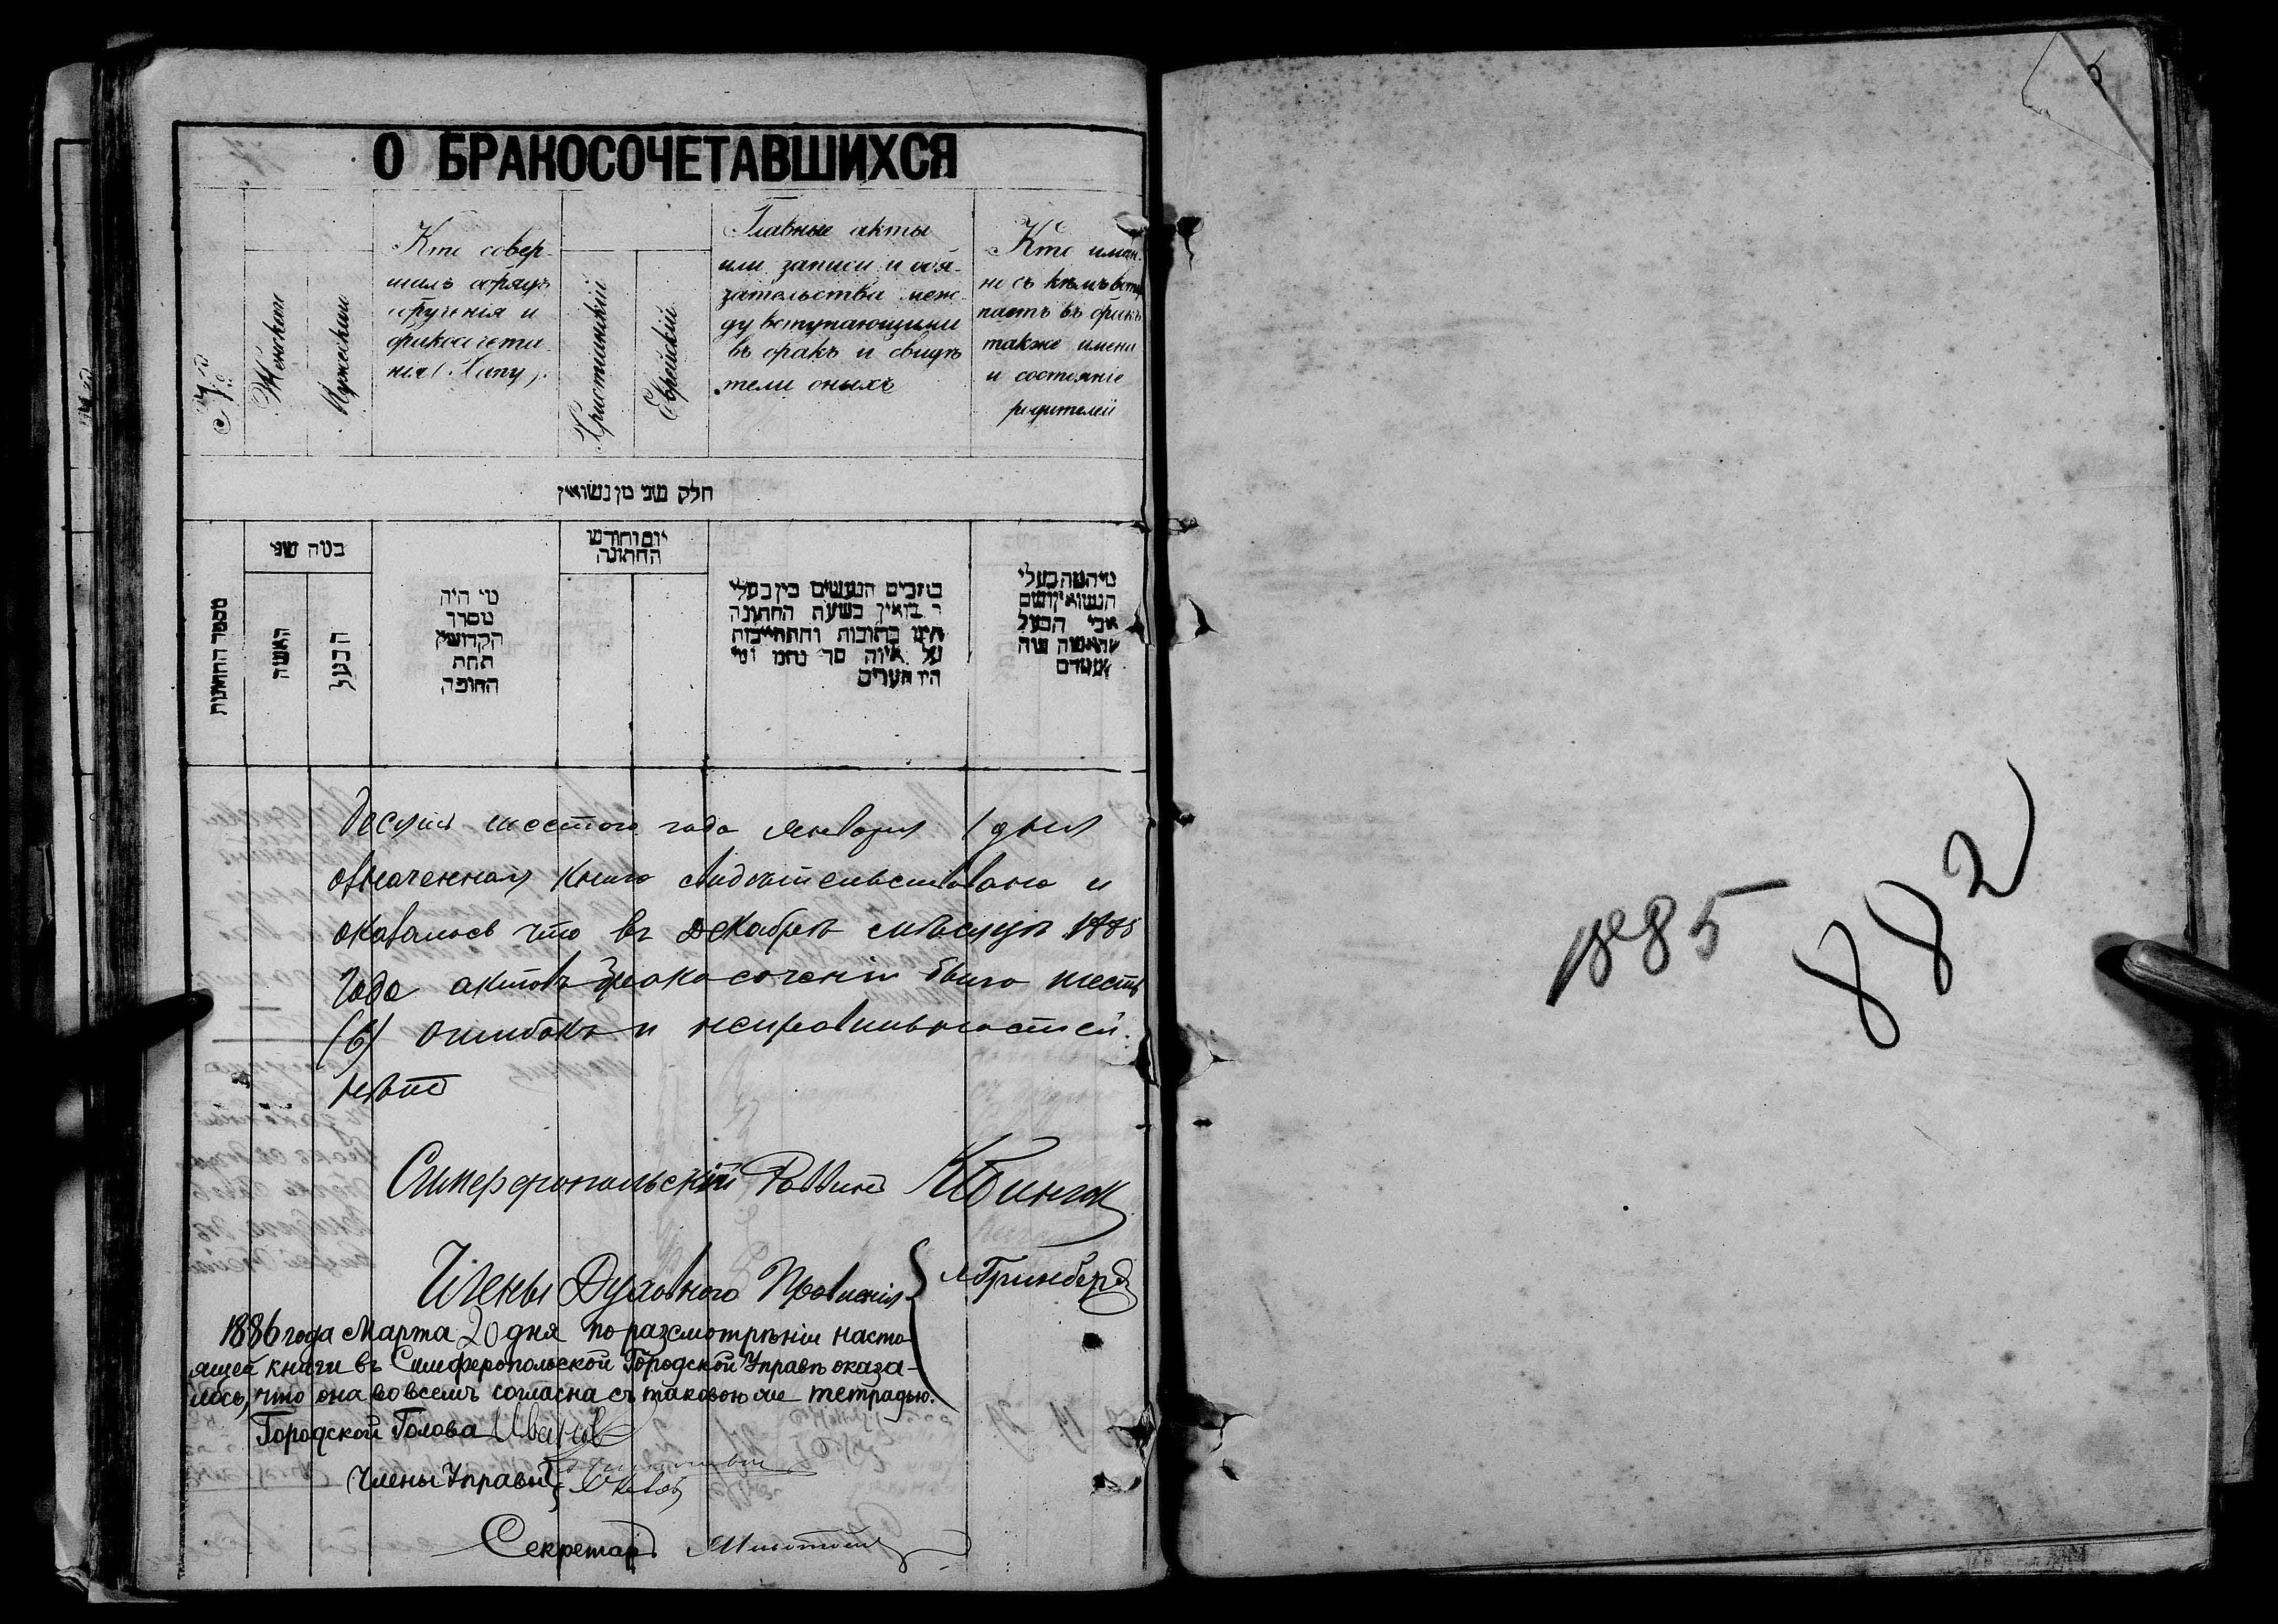 О БРАКОСОЧЕТАВШИХСЯ
№
Женскихъ
Мужескихъ
Кто совер-
шалъ обрядъ
обрученія и
бракосочета-
нія (Хупу).
Христіанскій
Еврейскій
Главные акты
или записи и обя-
зательства меж-
ду вступающими
въ бракъ и свидѣ
тели оныхъ
Кто имен-
но съ кѣмъ всту
паетъ въ бракъ
также имена
и состояніе
родителей
חלק שני מן נשואין
מספר החתונות
כמה שני
האשה
הבעל
מי היה
מסדר
הקדושין
תחת
החופה
יום וחודש
החתונה
הנעשים בין בעלי
בשעת החתונה
היינו כתובות והתחייבות
על איזה סך נחמו ומי
היו העדים
מי המה בעלי
הנשואין ושם
אבי הבעל
והאשה ומה
מעמדם
десятъ шестого года января 1 дня
означенная книга свидѣтельствована и
оказалось что въ декабрѣ мѣсяцѣ 1885
года актовъ бракосочетаній было шесть
(6) ошибокъ и неправильностей
нѣтъ
Симферопольскій Раввинъ
Члены Духовнаго Правленія { Гринбергъ
1886 года Марта 20 дня по разсмотрѣніи насто-
ящей книги въ Симферопольской Городской Управѣ оказа-
лось, что она во всемъ согласна съ таковою же тетрадью.
Городской Голова Иванов
Члены Управы {
Секретарь
1885
882